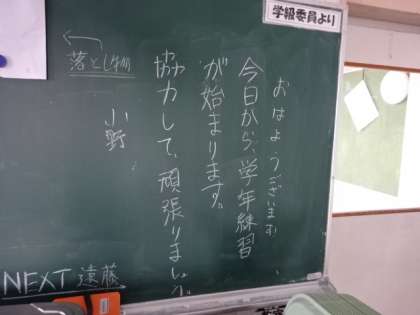 学級委員より
おはようございます
今日から、学年練習
が始まります。
協力して、頑張りましょう。
小野
落とし物
NEXT 遠藤